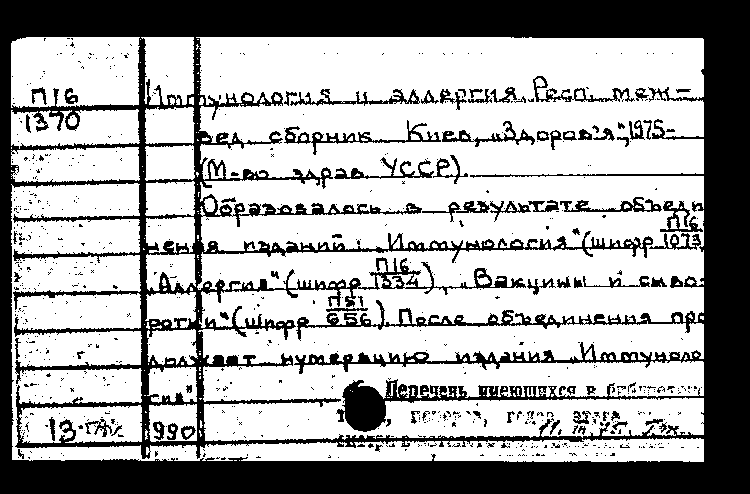 П16
1370
Иммунология и аллергия. Респ. меж-
вед. сборник Киев, „Здоров'я", 1975-
(М-во здрав. УССР).
Образовалось в результате объеди
нения изданий: „Иммунология" (шифр П16 1073
„Аллергия" (шифр П16 1334), „Вакцины и сыво-
ротки" (шифр П51 656). После объединения про
должает нумерацию издания „Иммуноло
гия".
Перечень имеющихся в библиотеке
номеров, годов,
13 990 11. III. 75.